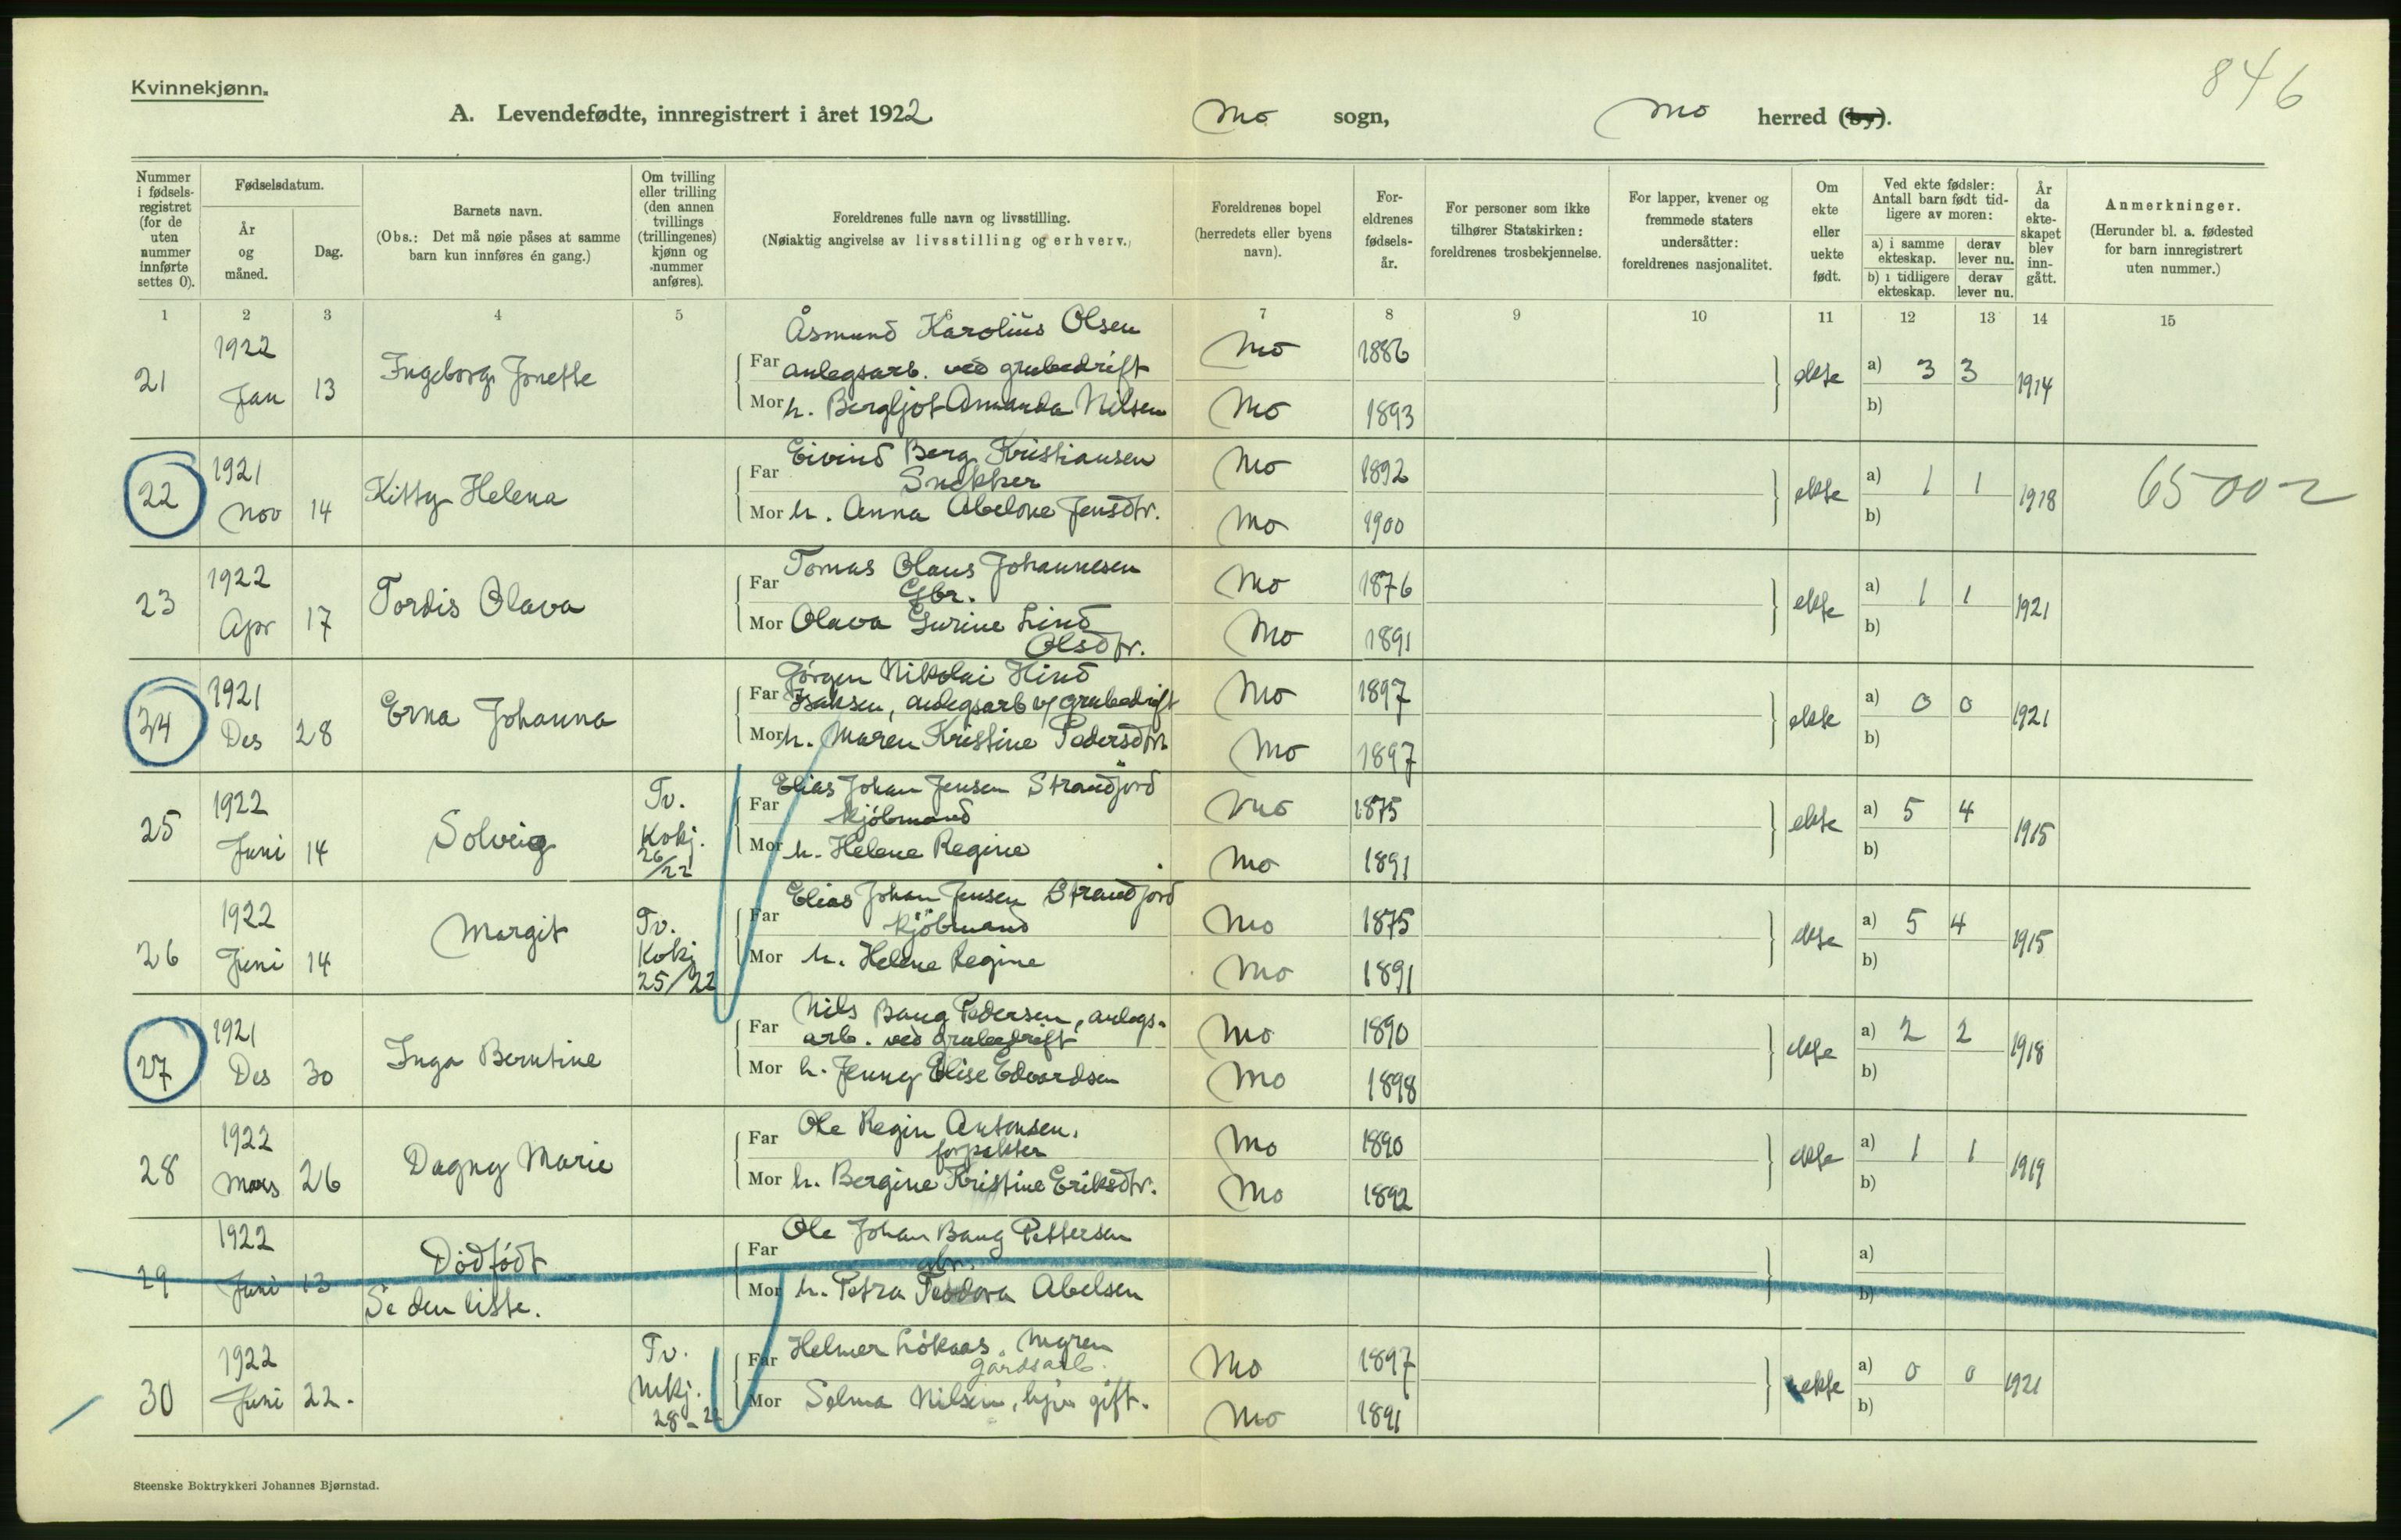 Kvinnekjønn.
846
A. Levendefødte, innregistrert i året 1922 Mo sogn, Mo herred (by).
Nummer i fødselsregistret (for de uten nummer innførte settes 0).
Fødselsdatum.
År og måned.
Dag.
Barnets navn.
(Obs.: Det må nøie påses at samme barn kun innføres én gang.)
Om tvilling eller trilling (den annen tvillings (trillingenes) kjønn og nummer anføres).
Foreldrenes fulle navn og livsstilling.
(Nøiaktig angivelse av livsstilling og erhverv.)
Foreldrenes bopel (herredets eller byens navn).
Foreldrenes fødselsår.
For personer som ikke tilhører Statskirken: foreldrenes trosbekjennelse.
For lapper, kvener og fremmede staters undersåtter: foreldrenes nasjonalitet.
Om ekte eller uekte født.
Ved ekte fødsler: Antall barn født tidligere av moren:
a) i samme ekteskap. derav lever nu.
b) i tidligere ekteskap. derav lever nu.
År da ekteskapet blev inngått.
Anmerkninger.
(Herunder bl. a. fødested for barn innregistrert uten nummer.)
1 2 3 4 5 6 7 8 9 10 11 12 13 14 15
21 1922 Jan 13 Ingeborg Jonette
Åsmund Karolius Olsen
Far anlegsarb. ved grubedrift Mo 1886
Mor h. Bergljot Amanda Nilsen Mo 1893
ekte a) 3 3 b) 1914
22 1921 Nov 14 Kitty Helena
Eivind Berg Kristiansen
Far Snekker Mo 1892
Mor h. Anna Abelone Jensdtr. Mo 1900
ekte a) 1 1 b) 1918 65002
23 1922 Apr 17 Tordis Olava
Tomas Olaus Johannesen
Far Gbr. Mo 1876
Mor Olava Gurine Lind
Olsdtr. Mo 1891
ekte a) 1 1 b) 1921
24 1921 Des 28 Erna Johanna
Jörgen Nikolai Hind
Far Isaksen, anlegsarb v/ grubedrift Mo 1897
Mor h. Maren Kristine Pedersdtr. Mo 1897
ekte a) 0 0 b) 1921
25 1922 Juni 14 Solveig Tv. Kvkj. 26/22
Elias Johan Jensen Strandjord
Far kjöbmand Mo 1875
Mor h. Helene Regine Mo 1891
ekte a) 5 4 b) 1915
26 1922 Juni 14 Margit Tv. Kvkj 25/22
Elias Johan Jensen Strandjord
Far kjöbmand Mo 1875
Mor h. Helene Regine Mo 1891
ekte a) 5 4 b) 1915
27 1921 Des 30 Inga Berntine
Nils Baug Pedersen, anlegs-
Far arb. ved grubedrift Mo 1890
Mor h. Jenny Elise Edvardsen Mo 1898
ekte a) 2 2 b) 1918
28 1922 Mars 26 Dagny Marie
Ole Regin Antonsen,
Far forpakter Mo 1890
Mor h. Bergine Kristine Eriksdtr. Mo 1892
ekte a) 1 1 b) 1919
29 1922 Juni 13 Dödfödt
Se den liste.
Ole Johan Baug Pettersen
Far
Mor h. Petra Abelsen
a) b)
30 1922 Juni 22. Tv. Mkj. 28-22
Far Helmer Lökaas, Myren
gårdsarb. Mo 1897
Mor Selma Nilsen, gift. Mo 1891
ekte a) 0 0 b) 1921
Steenske Boktrykkeri Johannes Bjørnstad.